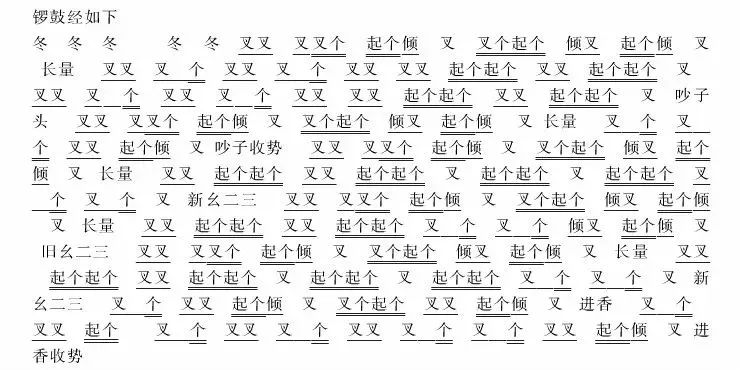 锣鼓经如下
冬 冬 冬 冬 冬 叉叉 叉叉个 起个倾 叉 叉个起个 倾叉 起个倾 叉
长量 叉叉 叉 个 叉叉 叉 个 叉叉 叉叉 起个起个 叉叉 起个起个 叉
叉叉 叉 个 叉叉 叉 个 叉叉 叉叉 起个起个 叉叉 起个起个 叉 吵子
头 叉叉 叉叉个 起个倾 叉 叉个起个 倾叉 起个倾 叉 长量 叉 个 叉
个 叉叉 起个倾 叉 吵子收势 叉叉 叉叉个 起个倾 叉 叉个起个 倾叉 起个
倾 叉 长量 叉叉 起个起个 叉叉 起个起个 叉 起个起个 叉 起个起个 叉
个 叉 个 叉 新幺二三 叉叉 叉叉个 起个倾 叉 叉个起个 倾叉 起个倾
叉 长量 叉叉 起个起个 叉叉 起个起个 叉 个 叉 个 倾叉 起个倾 叉
旧幺二三 叉叉 叉叉个 起个倾 叉 叉个起个 倾叉 起个倾 叉 长量 叉叉
起个起个 叉叉 起个起个 叉 起个起个 叉 起个起个 叉 个 叉 个 叉 新
幺二三 叉 个 叉叉 起个倾 叉 叉个起个 叉叉 起个倾 叉 进香 叉 个
叉叉 起个 叉 个 叉叉 叉 个 叉叉 叉 个 叉 个 叉叉 起个倾 叉 进
香收势